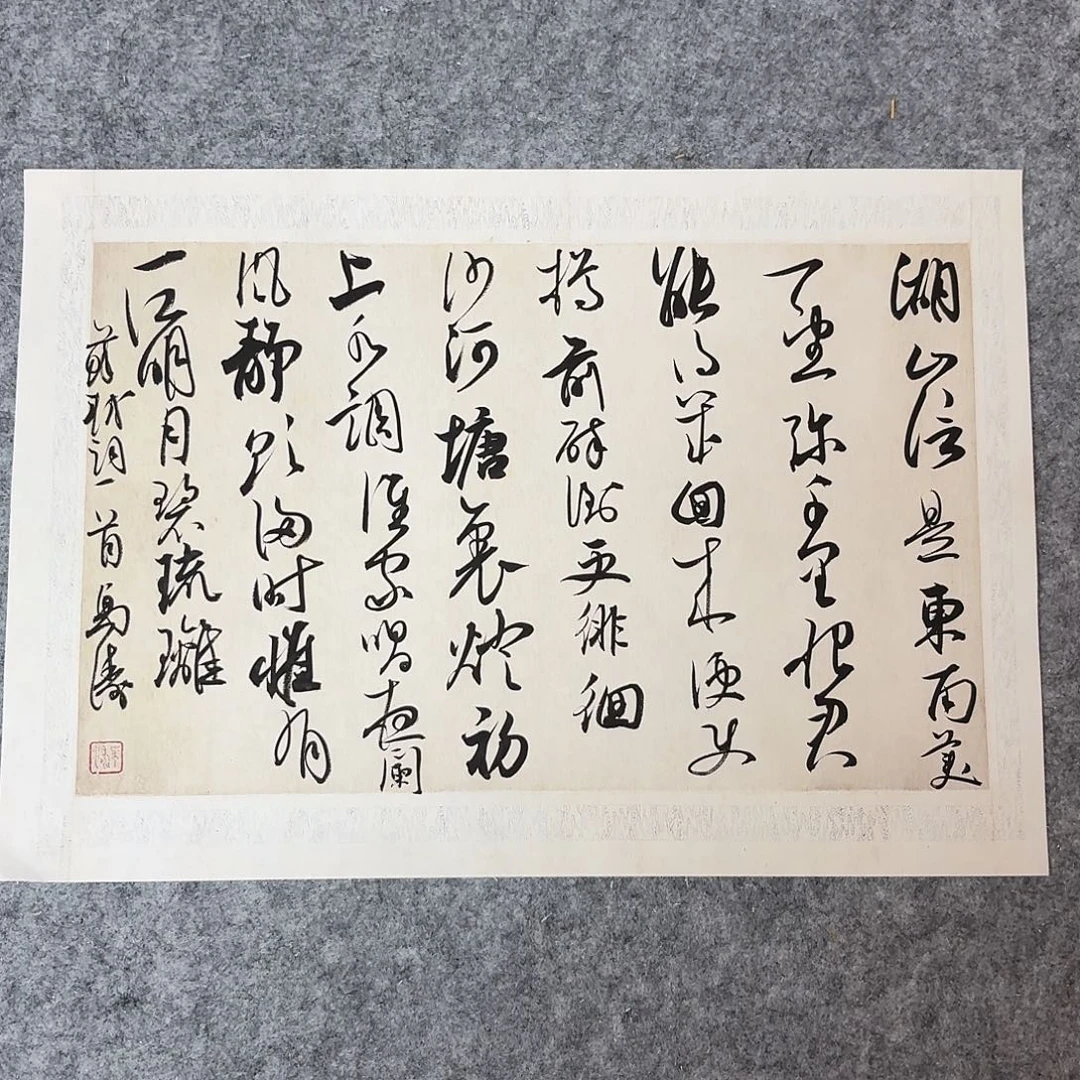 湖山信是東南美
一望弥千里使君
能得幾回来便使
樽前醉倒更徘徊
沙河塘裏燈初
上水調誰家唱夜闌
風靜欲歸时惟有
一江明月碧琉璃
蘇軾詞一首馬濤